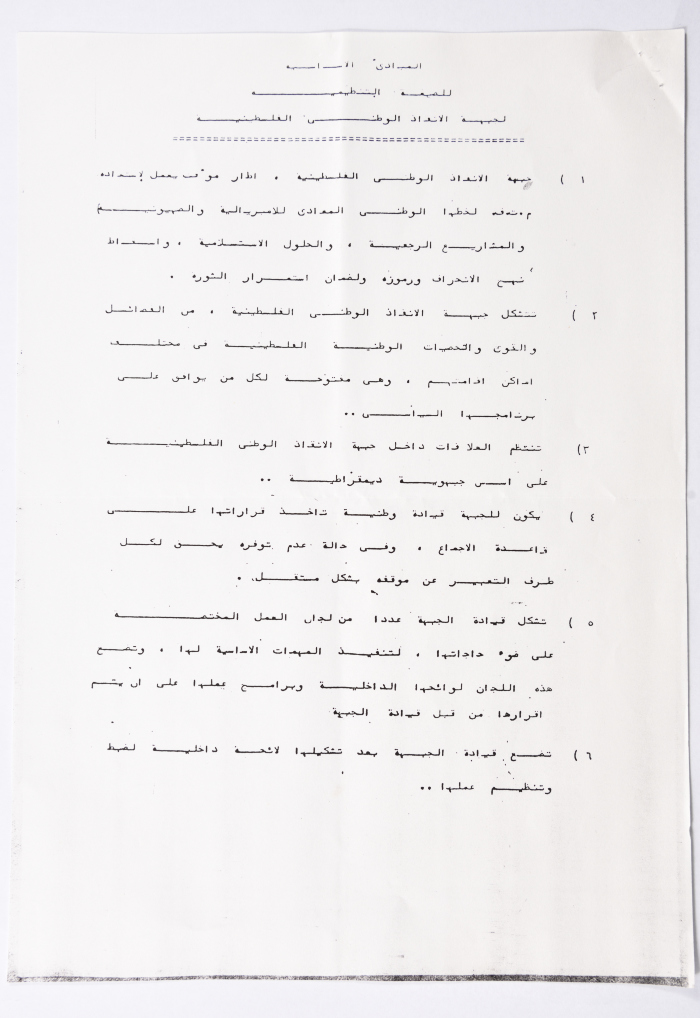 المبادئ الاساسية
للصيغة التنظيمية
لجبهة الانقاذ الوطني الفلسطينية
١ ) جبهة الانقاذ الوطني الفلسطينية ، اطار مؤقت يعمل لاستعادة
م.ت.ف لخطها الوطني المعادي للامبريالية والصهيونية
والمشاريع الرجعية ، والحلول الاستسلامية ، واسقاط
نهج الانحراف ورموزه ولضمان استمرار الثوره .
٢ ) تتشكل جبهة الانقاذ الوطني الفلسطينية ، من الفصائل
والقوى والشخصيات الوطنية الفلسطينية في مختلف
اماكن اقامتهم ، وهي مفتوحة لكل من يوافق على
برنامجها السياسي ..
٣) تنتظم العلاقات داخل جبهة الانقاذ الوطني الفلسطينية
على اسس جبهوية ديمقراطية ..
٤ ) يكون للجبهة قيادة وطنية تتخذ قراراتها على
قاعدة الاجماع ، وفي حالة عدم توفره يحق لكل
طرف التعبير عن موقفه بشكل مستقل .
٥ ) تشكل قيادة الجبهة عددا من لجان العمل المختصه
على ضوء حاجاتها ، لتنفيذ المهمات الاساسية لها ، وتضع
هذه اللجان لوائحها الداخلية وبرامج عملها على ان يتم
اقرارها من قبل قيادة الجبهة
٦ ) تضع قيادة الجبهة بعد تشكيلها لائحة داخلية لضبط
وتنظيم عملها ..